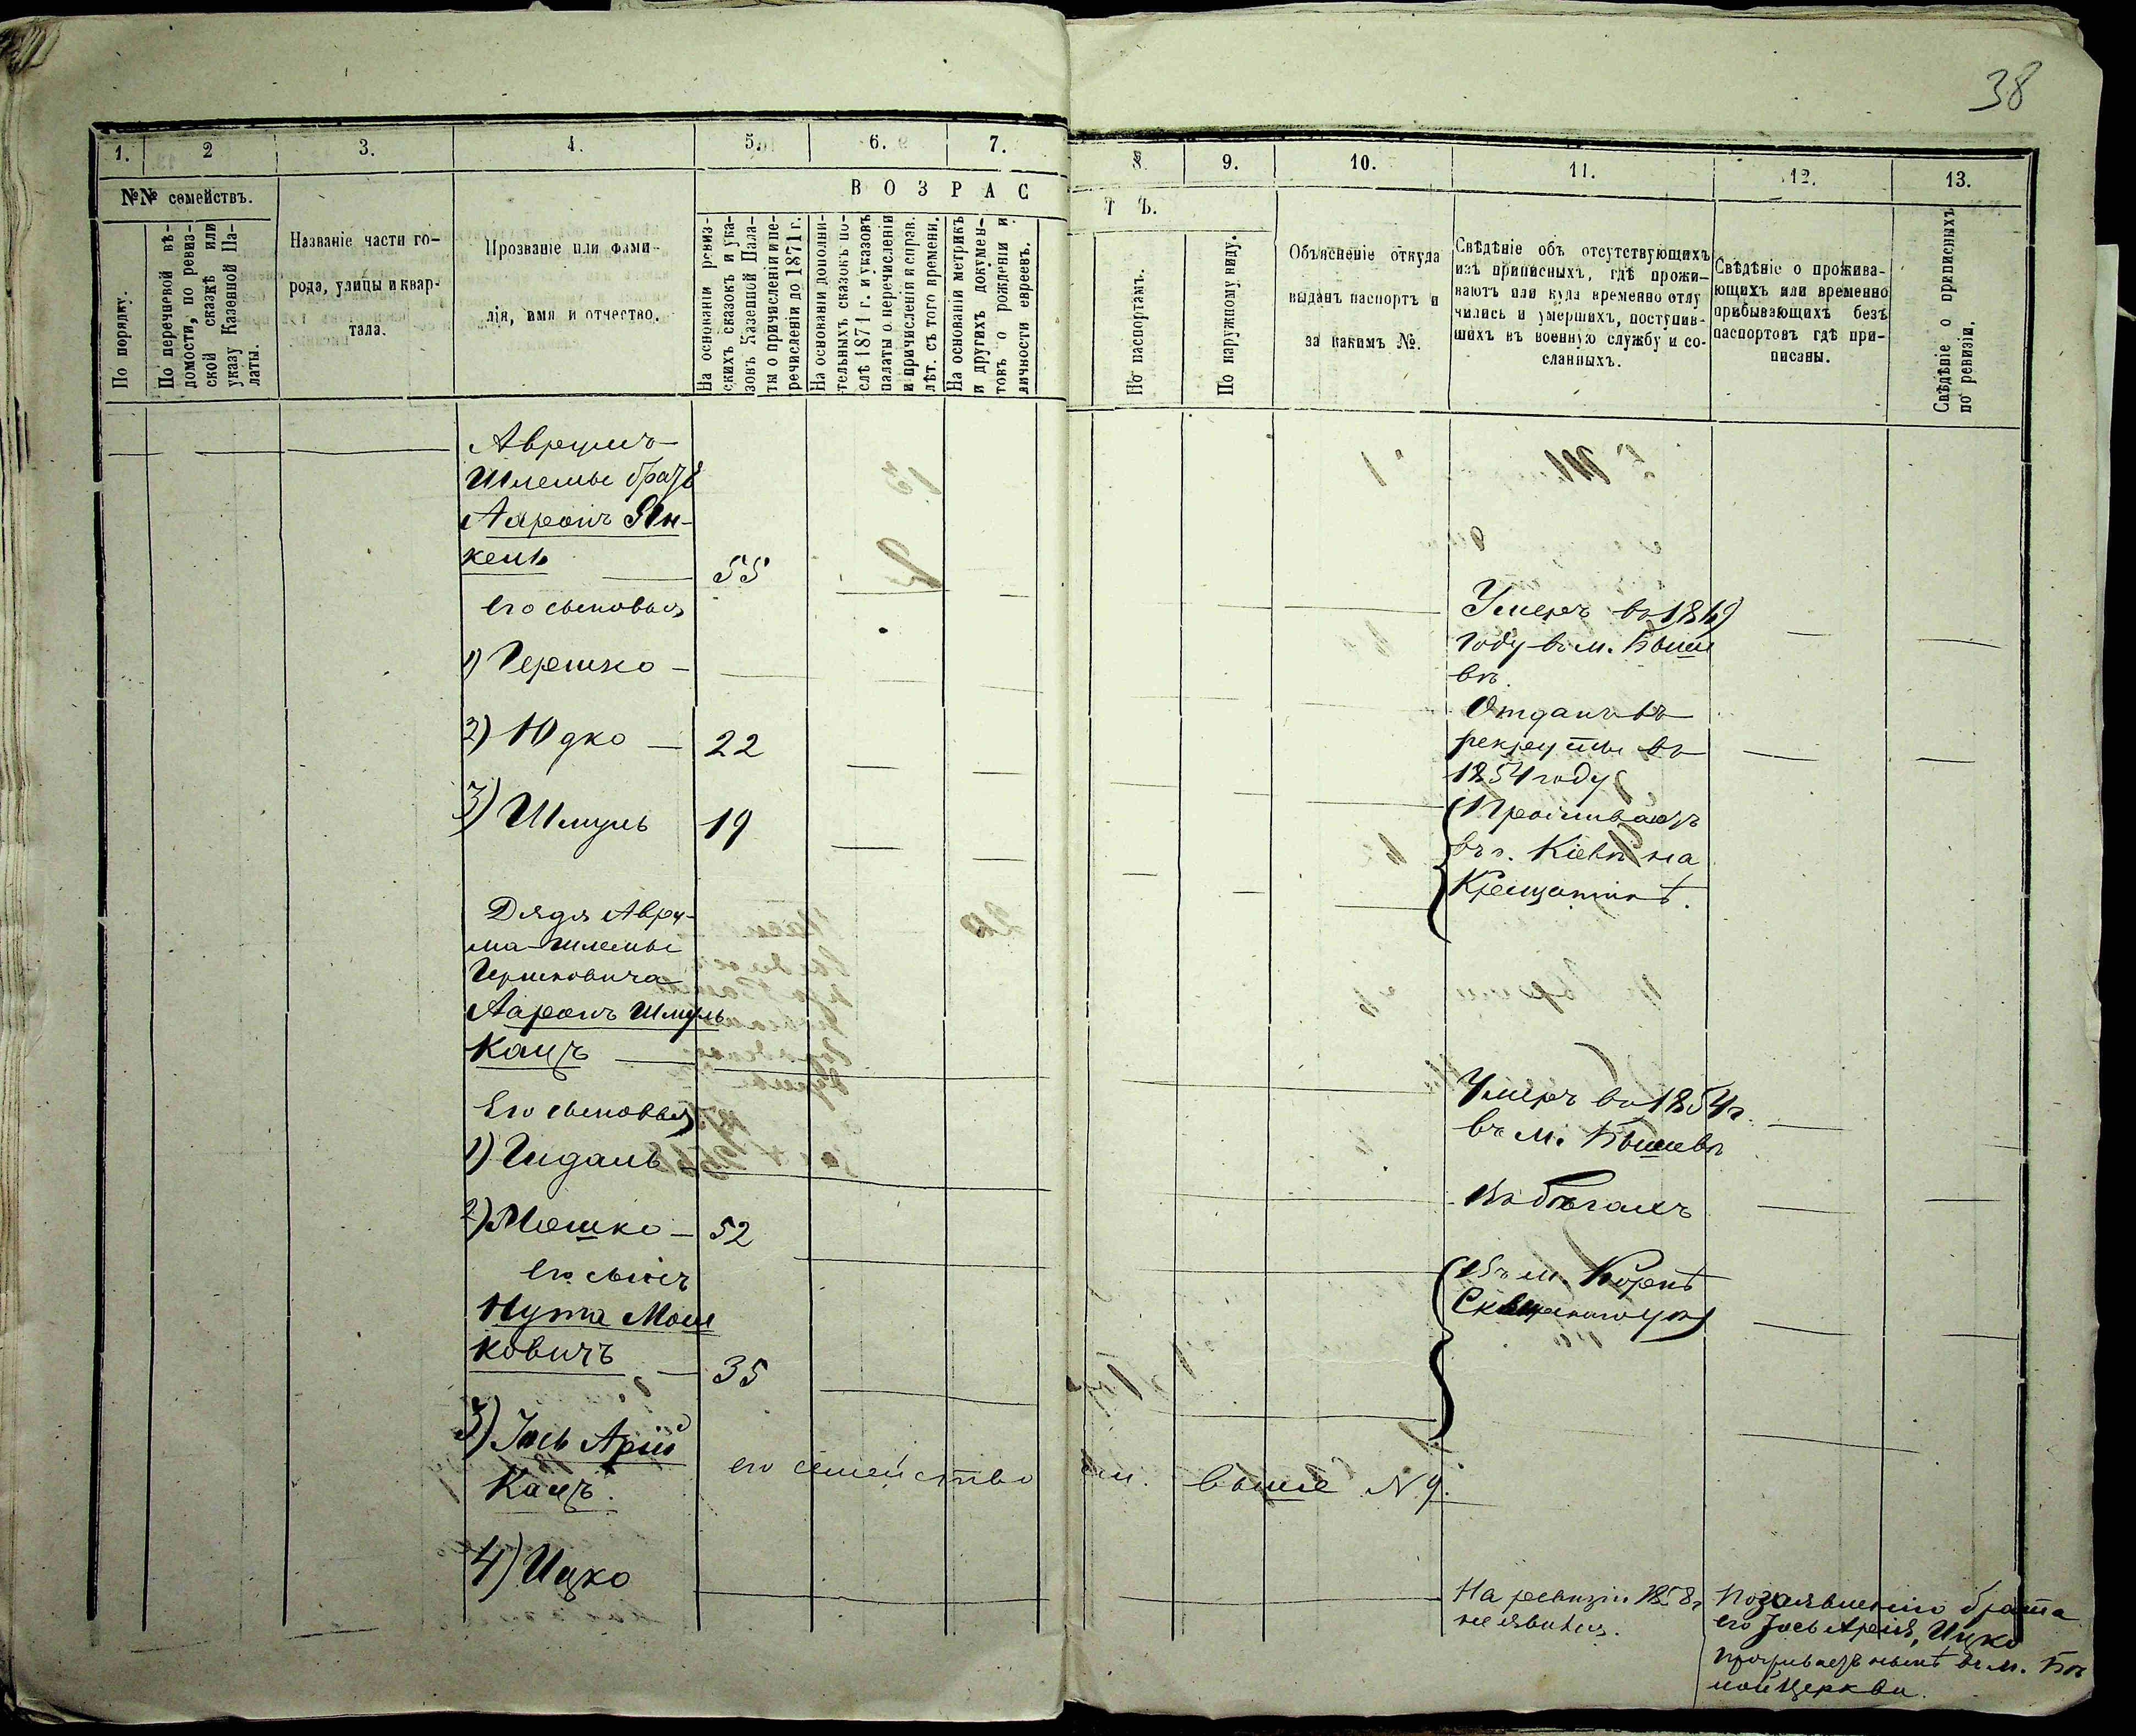 38
1. 2 3. 4. 5. 6. 7. 8. 9. 10. 11. 12. 13.
№№ семействъ.
По порядку.
По перечневой вѣ-
домости, по ревиз-
ской сказкѣ или
указу Казенной Па-
латы.
Названіе части го-
рода, улицы и квар-
тала.
Прозваніе или фами-
лія, имя и отчество.
ВОЗРАС
ТЪ.
На основаніи ревиз-
скихъ сказокъ и ука-
зовъ Казенной Пала-
ты о причисленіи и пе-
речисленіи до 1871 г.
На основаніи дополни-
тельныхъ сказокъ по-
слѣ 1871 г. и указовъ
палаты о перечисленіи
и причисленіи и справ.
лѣт. съ того времени.
На основаніи метрикъ
и другихъ докумен-
товъ о рожденіи и
личности евреевъ.
По паспортамъ.
По наружному виду.
Объясненіе откуда
выданъ паспортъ и
за какимъ №.
Свѣдѣніе объ отсутствующихъ
изъ приписныхъ, гдѣ прожи-
ваютъ или куда временно отлу
чились и умершихъ, поступив-
шихъ въ военную службу и со-
сланныхъ.
Свѣдѣніе о прожива-
ющихъ или временно
прибывающихъ безъ
паспортовъ гдѣ при-
писаны.
Свѣдѣніе о приписныхъ
по ревизіи.
Аврумъ
Шлемы братъ
Ааронъ Ян-
кель 55
Умеръ въ
году въ м. Быше
вѣ.
его сыновья
1) Гершко
Отданъ въ
рекруты въ
1854 году
2) Юдко 22
3) Шмуль 19
Проживаютъ
въ г. Кіевѣ на
Крещатикѣ.
Дядя Авру-
ма Шлемы
Гершковича
Ааронъ Шмуль
Кацъ
Умеръ въ 1854 г.
въ м. Бышевѣ
Его сыновья
1) Гидаль
Въ бѣгахъ
2) Мошко 52
его сынъ
Нута Мош
ковичъ 35
Въ м.
Сквирскаго у.
3) Іось Арій
Кацъ.
его семейство см. выше N 9.
4) Ицко
На ревизіи 1858 г
не явился.
По заявленію брата
его Іось Арія, Ицко
проживаетъ въ м. Бѣ
лой Церкви.